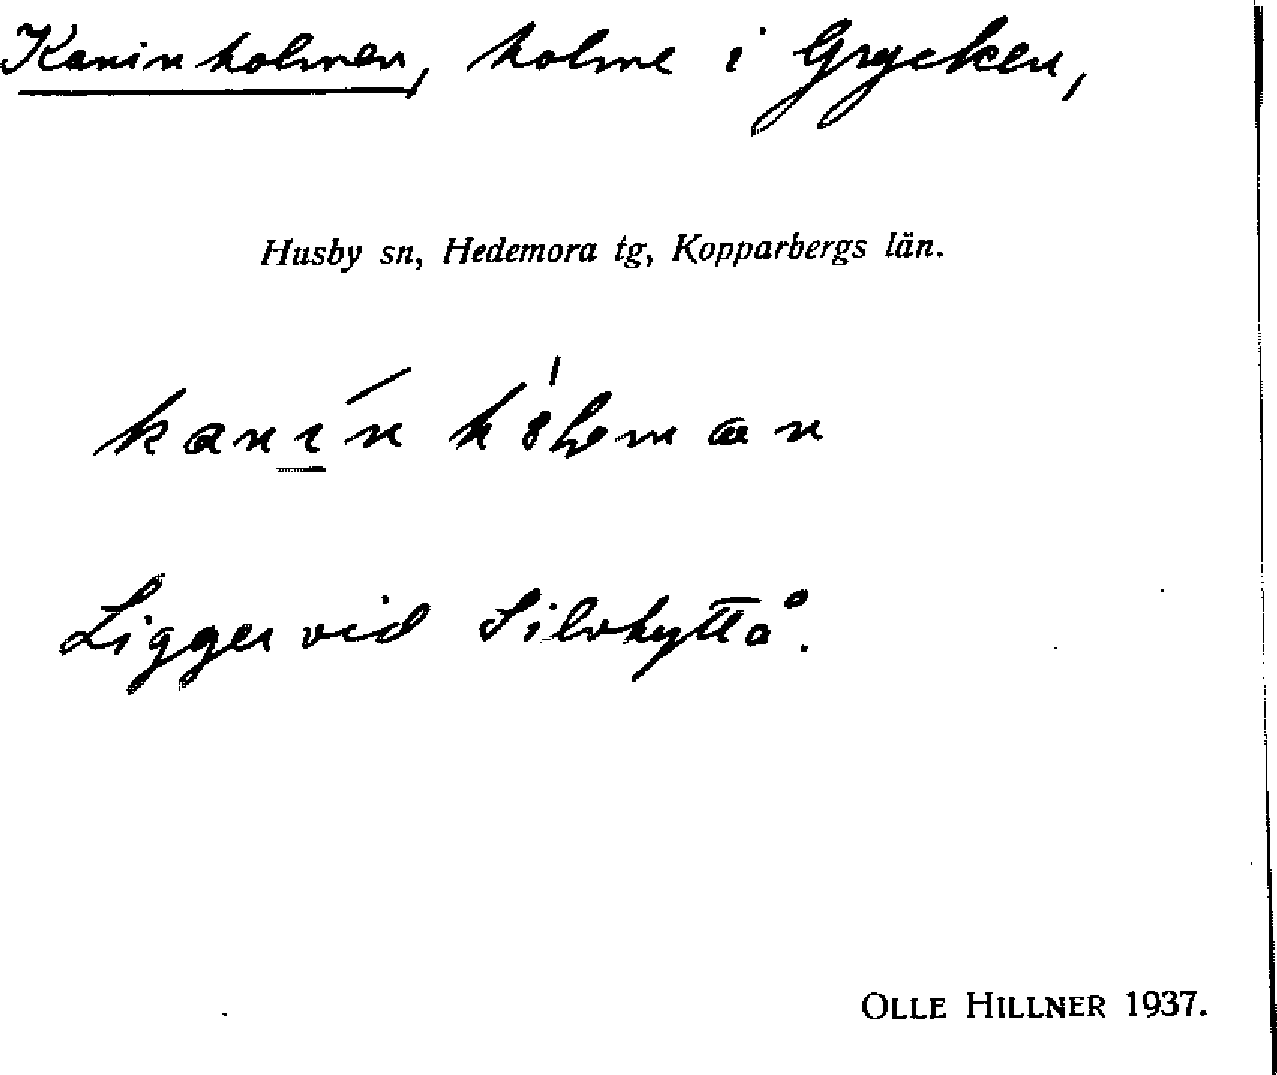 Kaninholmen, holme i Grycken,
Husby sn, Hedemora tg, Kopparbergs län.
Ligger vid Silvhyttå.
OLLE HILLNER 1937.